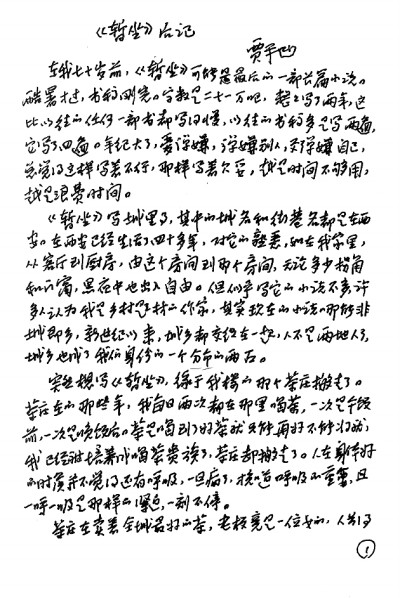 《暂坐》后记
贾平凹
在我七十岁前，《暂坐》可能是最后的一部长篇小说。
酷暑才过，书稿刚完。字数是二十一万吧，想想写了两年，这
比以往的任何一部书都写得慢，以往的书稿多是写两遍，
它写了四遍。年纪大了，爱弹嫌，弹嫌别人，更弹嫌自己，
总觉得这样写着不行，那样写着欠妥，越是时间不够用，
越是浪费时间。
《暂坐》写城里事，其中的城名和街巷名都是在西
安。在西安已经生活了四十多年，对它的熟悉，如在我家里，
从客厅到厨房，由这个房间到那个房间，无论多少拐角
和门窗，黑夜中也出入自由。但似乎写它的小说不多，许
多人认为我是乡村题材的作家，其实现在的小说哪能非
城即乡，新世纪以来，城乡都交织在一起，人不是两地人了，
城乡也成了我们身份的一个分币的两面。
突然想写《暂坐》，缘于我楼下的那个茶庄搬走了。
茶庄在的那些年，我每日两次都在那里喝茶，一次是午饭
前，一次是晚饭后。茶是喝到了好茶就只能再好不能将就，
我已经被培养成喝茶贵族了，茶庄却搬走了。人在身体好
的时候并不觉得还有呼吸，一旦病了，才知道呼吸的重要，且
一呼一吸是那样的紧迫，一刻不停。
茶庄在卖着全城最好的茶，老板竟是一位女的，人长得
1